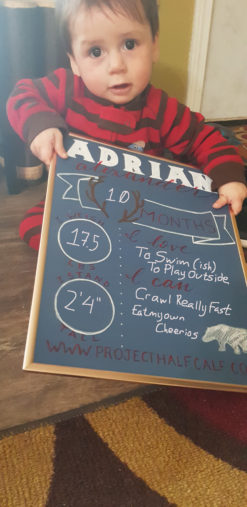 ADRIAN
alexander
10
MONTHS
I WEIGH
17.5
LBS
I STAND
2'4"
TALL
I love
To Swim (ish)
To Play Outside
I can
Crawl Really Fast
Eat my own
Cheerios
WWW.PROJECTHALFCALF.CO